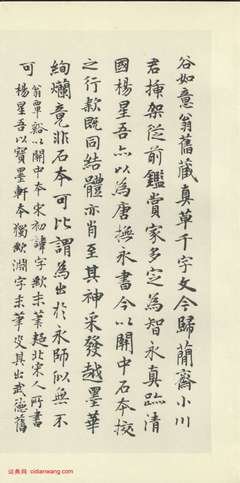 谷如意翁舊藏真草千字文今歸蕑齋小川
君插架從前鑑賞家多定為智永真跡清
國楊星吾亦以為唐撫永書今以關中石本挍
之行款既同結體亦肖至其神采發越墨華
絢爛竟非石本可比謂為出於永師似無不
可
翁覃谿以關中本宋初諱字歉末筆題北宋人所書
楊星吾以寶墨軒本獨歉淵字末筆定其出武德舊
证典网 cidianwang.com